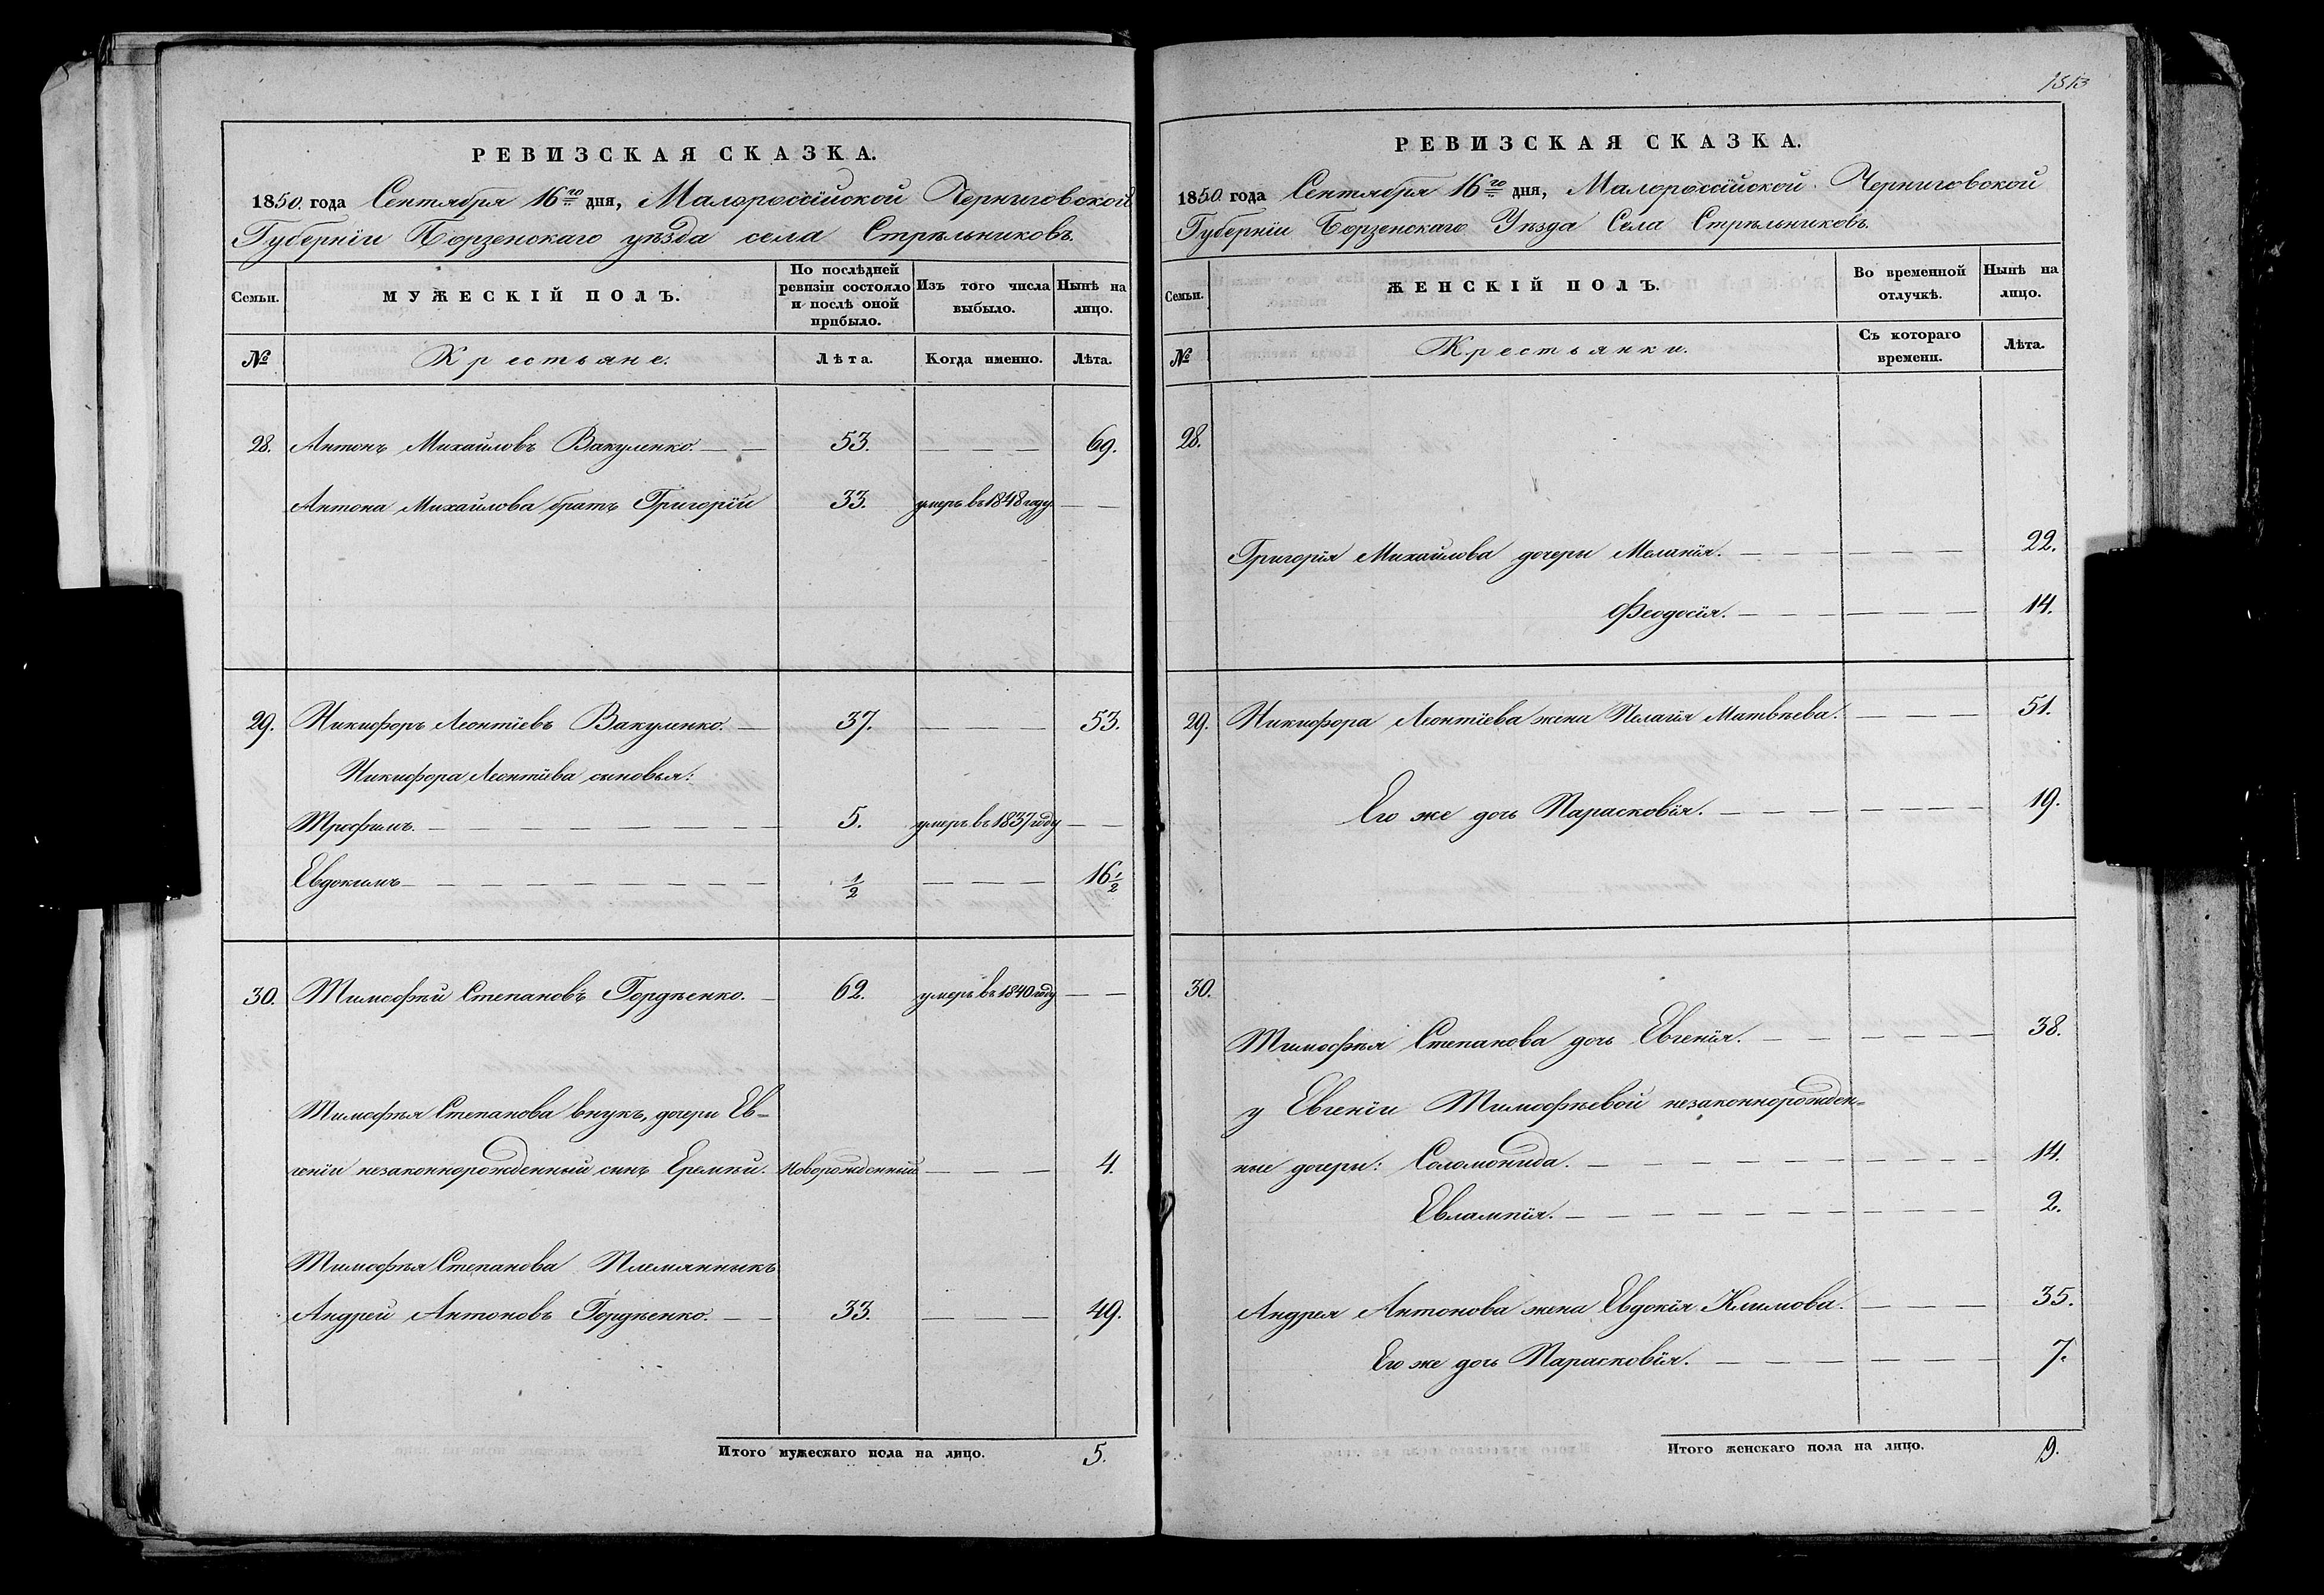 РЕВИЗСКАЯ СКАЗКА.
1850. года Сентября 16го дня, Малороссійской Черниговской
Губерніи Борзенскаго уѣзда села Стрѣльниковъ.
Семьи. МУЖЕСКІЙ ПОЛЪ. По послѣдней ревизіи состояло и послѣ оной прибыло. Изъ того числа выбыло. Нынѣ на лицо.
№ Крестьяне. Лѣта. Когда именно. Лѣта.
28. Антонъ Михайловъ Вакуленко. 53. 69.
Антона Михайлова братъ Григорій 33. умеръ въ 1848 году.
29. Никифоръ Леонтіевъ Вакуленко. 37. 53.
Никифора Леонтіева сыновья:
Трофимъ. 5. умеръ въ 1837 году
Евдокимъ 1/2 16 1/2
30. Тимофѣй Степановъ Гордѣенко. 62. умеръ въ 1840 году
Тимофѣя Степанова внукъ, дочери Ев-
геніи незаконнорожденный сынъ Еремѣй. Новорожденный 4.
Тимофѣя Степанова Племянныкъ
Андрей Антоновъ Гордѣенко. 33. 49.
Итого мужескаго пола на лицо. 5.
1513
РЕВИЗСКАЯ СКАЗКА.
1850. года Сентября 16го дня, Малороссійской Черниговской
Губерніи Борзенскаго Уѣзда Села Стрѣльниковъ.
Семьи. ЖЕНСКІЙ ПОЛЪ. Во временной отлучкѣ. Нынѣ на лицо.
№ Крестьянки. Съ котораго времени. Лѣта.
28.
Григорія Михайлова дочери Меланія. 22.
Феодосія. 14.
29. Никифора Леонтіева жена Пелагія Матвѣева. 51.
Его же дочь Парасковія. 19.
30.
Тимофѣя Степанова дочь Евгенія. 38.
у Евгеніи Тимофѣевой незаконнорожден=
ные дочери: Соломонида. 14.
Евлампія. 2.
Андрея Антонова жена Евдокія Климова. 35.
Его же дочь Парасковія. 7.
Итого женскаго пола на лицо. 9.